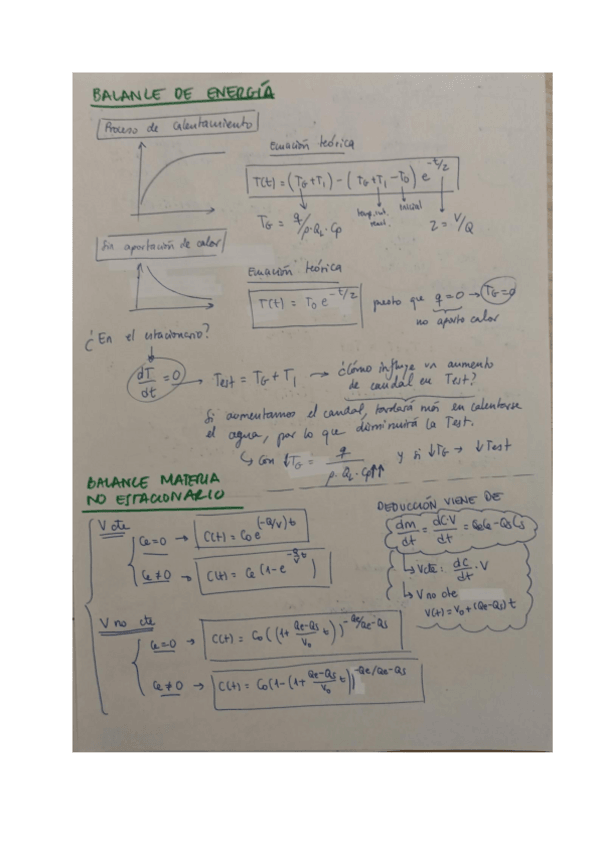 BALANCE DE ENERGÍA
Proceso de calentamiento
Ecuación teórica
T(t) = (T_G + T_1) - (T_G + T_1 - T_0) e^{-t/z}
T_G = q/ρ·Q_L·Cp
inicial
z = V/Q
Sin aportación de calor
Ecuación teórica
T(t) = T_0 e^{-t/z} puesto que q = 0 → T_G = 0
no aporto calor
¿En el estacionario?
dT/dt = 0 → Test = T_G + T_1 → ¿Cómo influye un aumento
de caudal en Test?
Si aumentamos el caudal, tardará más en calentarse
el agua, por lo que disminuirá la Test.
↳ Con ↓T_G = q/ρ·Q_L·Cp↑↑ y si ↓T_G → ↓Test
BALANCE MATERIA
NO ESTACIONARIO
V cte
Ce = 0 → C(t) = C_0 e^{(-Q/V)t}
Ce ≠ 0 → C(t) = Ce (1 - e^{-Q/V t})
V no cte
Ce = 0 → C(t) = C_0 ((1 + Qe-Qs/V_0 t))^{-Qe/Qe-Qs}
Ce ≠ 0 → C(t) = C_0 (1 - (1 + Qe-Qs/V_0 t))^{-Qe/Qe-Qs}
DEDUCCIÓN VIENE DE
dm/dt = dC·V/dt = QeCe - QsCs
↳ V cte: dC/dt · V
↳ V no cte
V(t) = V_0 + (Qe-Qs) t